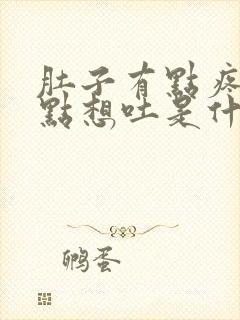 肚子有點疼
點想吐是什
鸭蛋